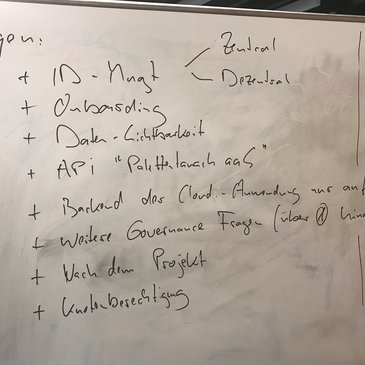 gen:
Zentral
+ ID-Mngt
Dezentral
+ Onboarding
+ Daten-Sichtbarkeit
+ API "Palettentausch aaS"
+ Backend der Cloud-Anwendung nur auf
+ Weitere Governance Fragen (über
+ Nach dem Projekt
+ Knotenberechtigung